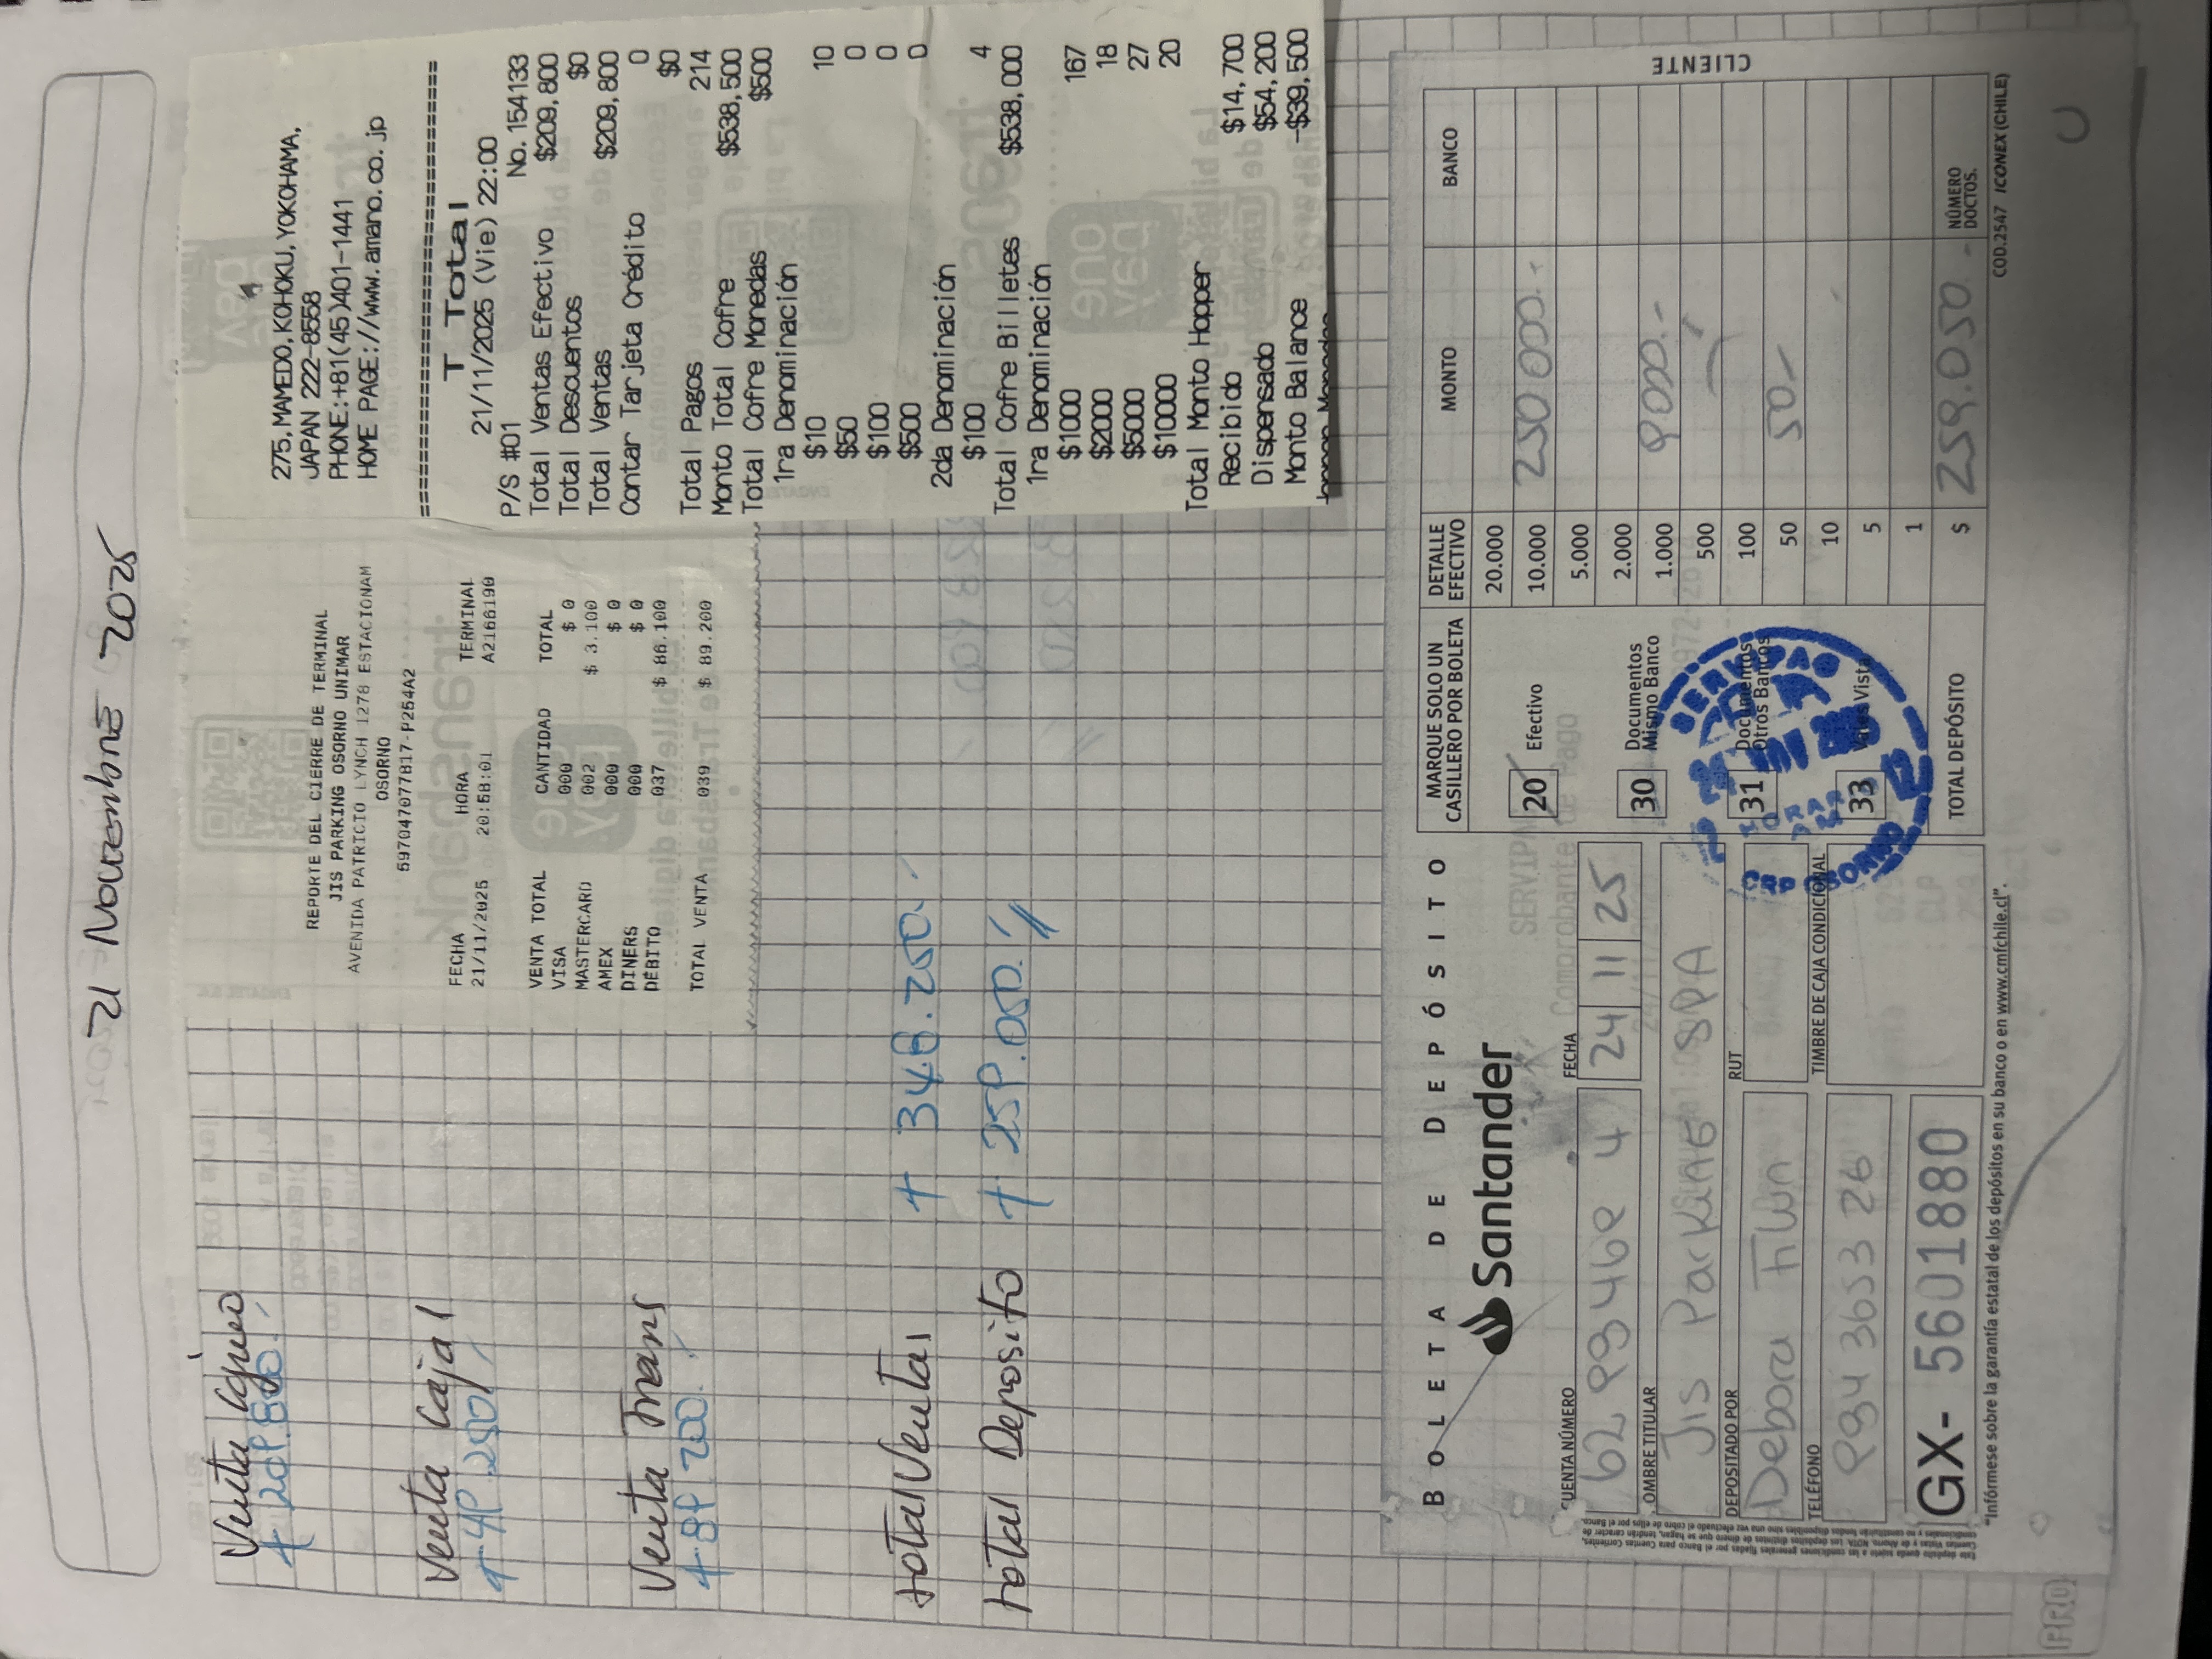 21 Noviembre 2025
Venta Cajero
+ 209.800.-
Venta Caja 1
+ 49.250.-
Venta Trans
+ 89.200.-
total Ventas
+ 348.250.-
total Deposito
+ 259.050.-
REPORTE DEL CIERRE DE TERMINAL
JIS PARKING OSORNO UNIMAR
AVENIDA PATRICIO LYNCH 1278 ESTACIONAM
OSORNO
597047077817-P254A2
FECHA HORA TERMINAL
21/11/2025 20:58:01 A2166190
VENTA TOTAL CANTIDAD TOTAL
VISA 000 $ 0
MASTERCARD 002 $ 3.100
AMEX 000 $ 0
DINERS 000 $ 0
DÉBITO 037 $ 86.100
TOTAL VENTA 039 $ 89.200
275, MAMEDO, KOHOKU, YOKOHAMA,
JAPAN 222-8558
PHONE:+81(45)401-1441
HOME PAGE://www.amano.co.jp
T Total
21/11/2025 (Vie) 22:00
P/S #01 No. 154133
Total Ventas Efectivo $209,800
Total Descuentos $0
Total Ventas $209,800
Contar Tarjeta Crédito 0
$0
Total Pagos 214
Monto Total Cofre $538,500
Total Cofre Monedas $500
1ra Denominación
$10 10
$50 0
$100 0
$500 0
2da Denominación
$100 4
Total Cofre Billetes $538,000
1ra Denominación
$1000 167
$2000 18
$5000 27
$10000 20
Total Monto Hopper
Recibido $14,700
Dispensado $54,200
Monto Balance -$39,500
BOLETA DE DEPÓSITO
Santander
CUENTA NÚMERO FECHA
24 11 25
NOMBRE TITULAR
JIS Parking SPA
DEPOSITADO POR RUT
Debora
TELÉFONO TIMBRE DE CAJA CONDICIONAL
934 3653 26
GX- 5601880
"Infórmese sobre la garantía estatal de los depósitos en su banco o en www.cmfchile.cl".
MARQUE SOLO UN
CASILLERO POR BOLETA
20 Efectivo
30 Documentos
Mismo Banco
31 Documentos
Otros Bancos
33 Vales Vista
TOTAL DEPÓSITO
DETALLE
EFECTIVO MONTO BANCO
20.000
10.000 250.000.-
5.000
2.000
1.000 9000.-
500
100
50 50.-
10
5
1
$ 259.050.- NÚMERO
DOCTOS.
CLIENTE
COD.2547 ICONEX (CHILE)
SERVIPAG